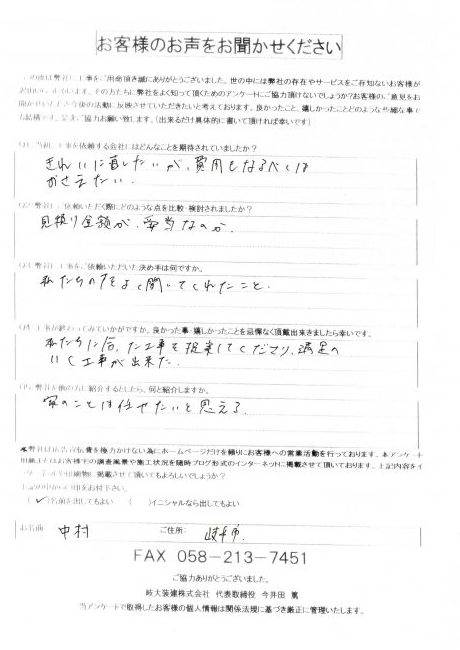 お客様のお声をお聞かせください
工事をご用命頂き誠にありがとうございました。世の中には弊社の存在やサービスをご存知ないお客様が
そのかたたちに弊社をよく知って頂くためのアンケートにご協力頂けないでしょうか?お客様のご意見をお
今後の活動に反映させていただきたいと考えております。良かったこと、嬉しかったことどのような些細な事で
ご協力お願い致します。(出来るだけ具体的に書いて頂ければ幸いです)
工事を依頼する会社にはどんなことを期待されていましたか?
きれいに直したいが、費用もなるべくは
おさえたい。
ご依頼いただく際にどのような点を比較・検討されましたか?
見積り金額が、妥当なのか。
工事をご依頼いただいた決め手は何ですか。
私たちの話をよく聞いてくれたこと。
工事が終わってみていかがですか。良かった事・嬉しかったことを忌憚なく頂戴出来きましたら幸いです。
私たちに合った工事を提案してくださり、満足の
いく工事が出来た。
弊社を他の方に紹介するとしたら、何と紹介しますか。
家のことは任せたいと思える
※弊社は広告宣伝費を極力かけない為にホームページだけを頼りにお客様への営業活動を行っております。本アンケート
お客様宅の調査風景や施工状況を随時ブログ形式のインターネットに掲載させて頂いております。上記内容をイ
掲載させて頂いてもよろしいでしょうか?
(✓)名前を出してもよい ( )イニシャルなら出してもよい
お名前 中村 ご住所: 岐阜市
FAX 058-213-7451
ご協力ありがとうございました。
岐大装建株式会社 代表取締役 今井田 篤
当アンケートで取得したお客様の個人情報は関係法規に基づき厳正に管理いたします。